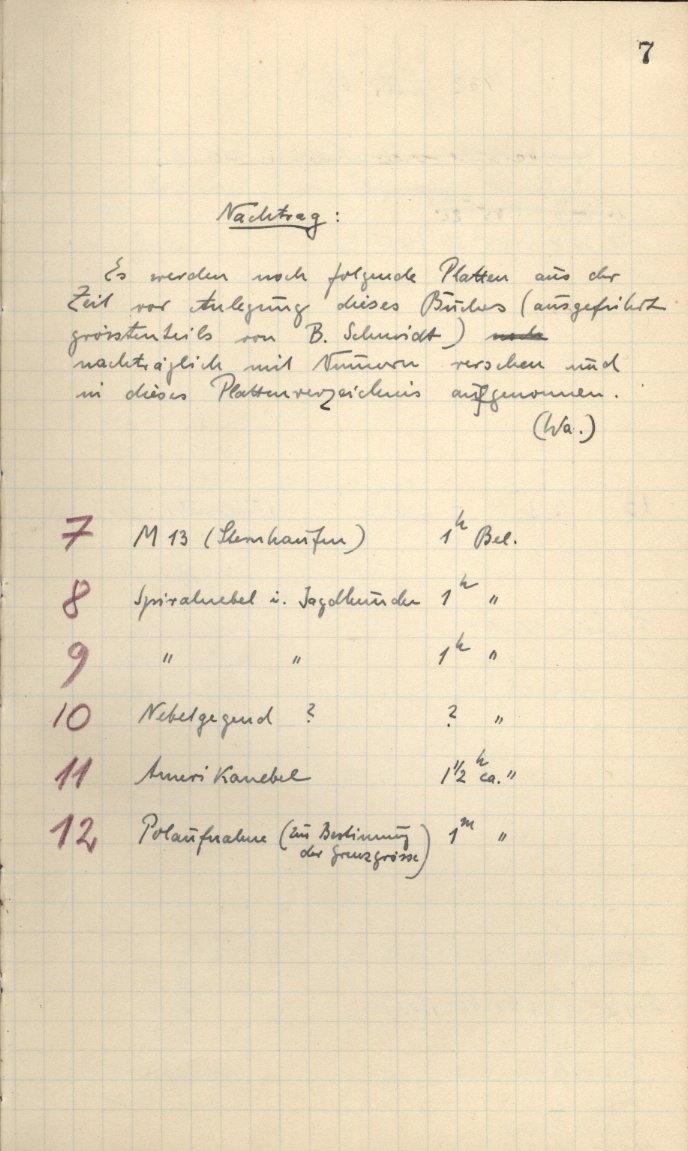 7
Nachtrag:
Es werden noch folgende Platten aus der
Zeit vor Anlegung dieses Buches (ausgeführt
grösstenteils von B. Schmidt) noch
nachträglich mit Nummern versehen und
in dieses Plattenverzeichnis aufgenommen.
(Wa.)
7 M 13 (Sternhaufen) 1h Bel.
8 Spiralnebel i. Jagdhunde 1h "
9 " " 1h "
10 Nebelgegend ? ? "
11 Amerikanebel 1 1/2h ca. "
12 Polaufnahme (zur Bestimmung 1m "
der Grenzgrösse)